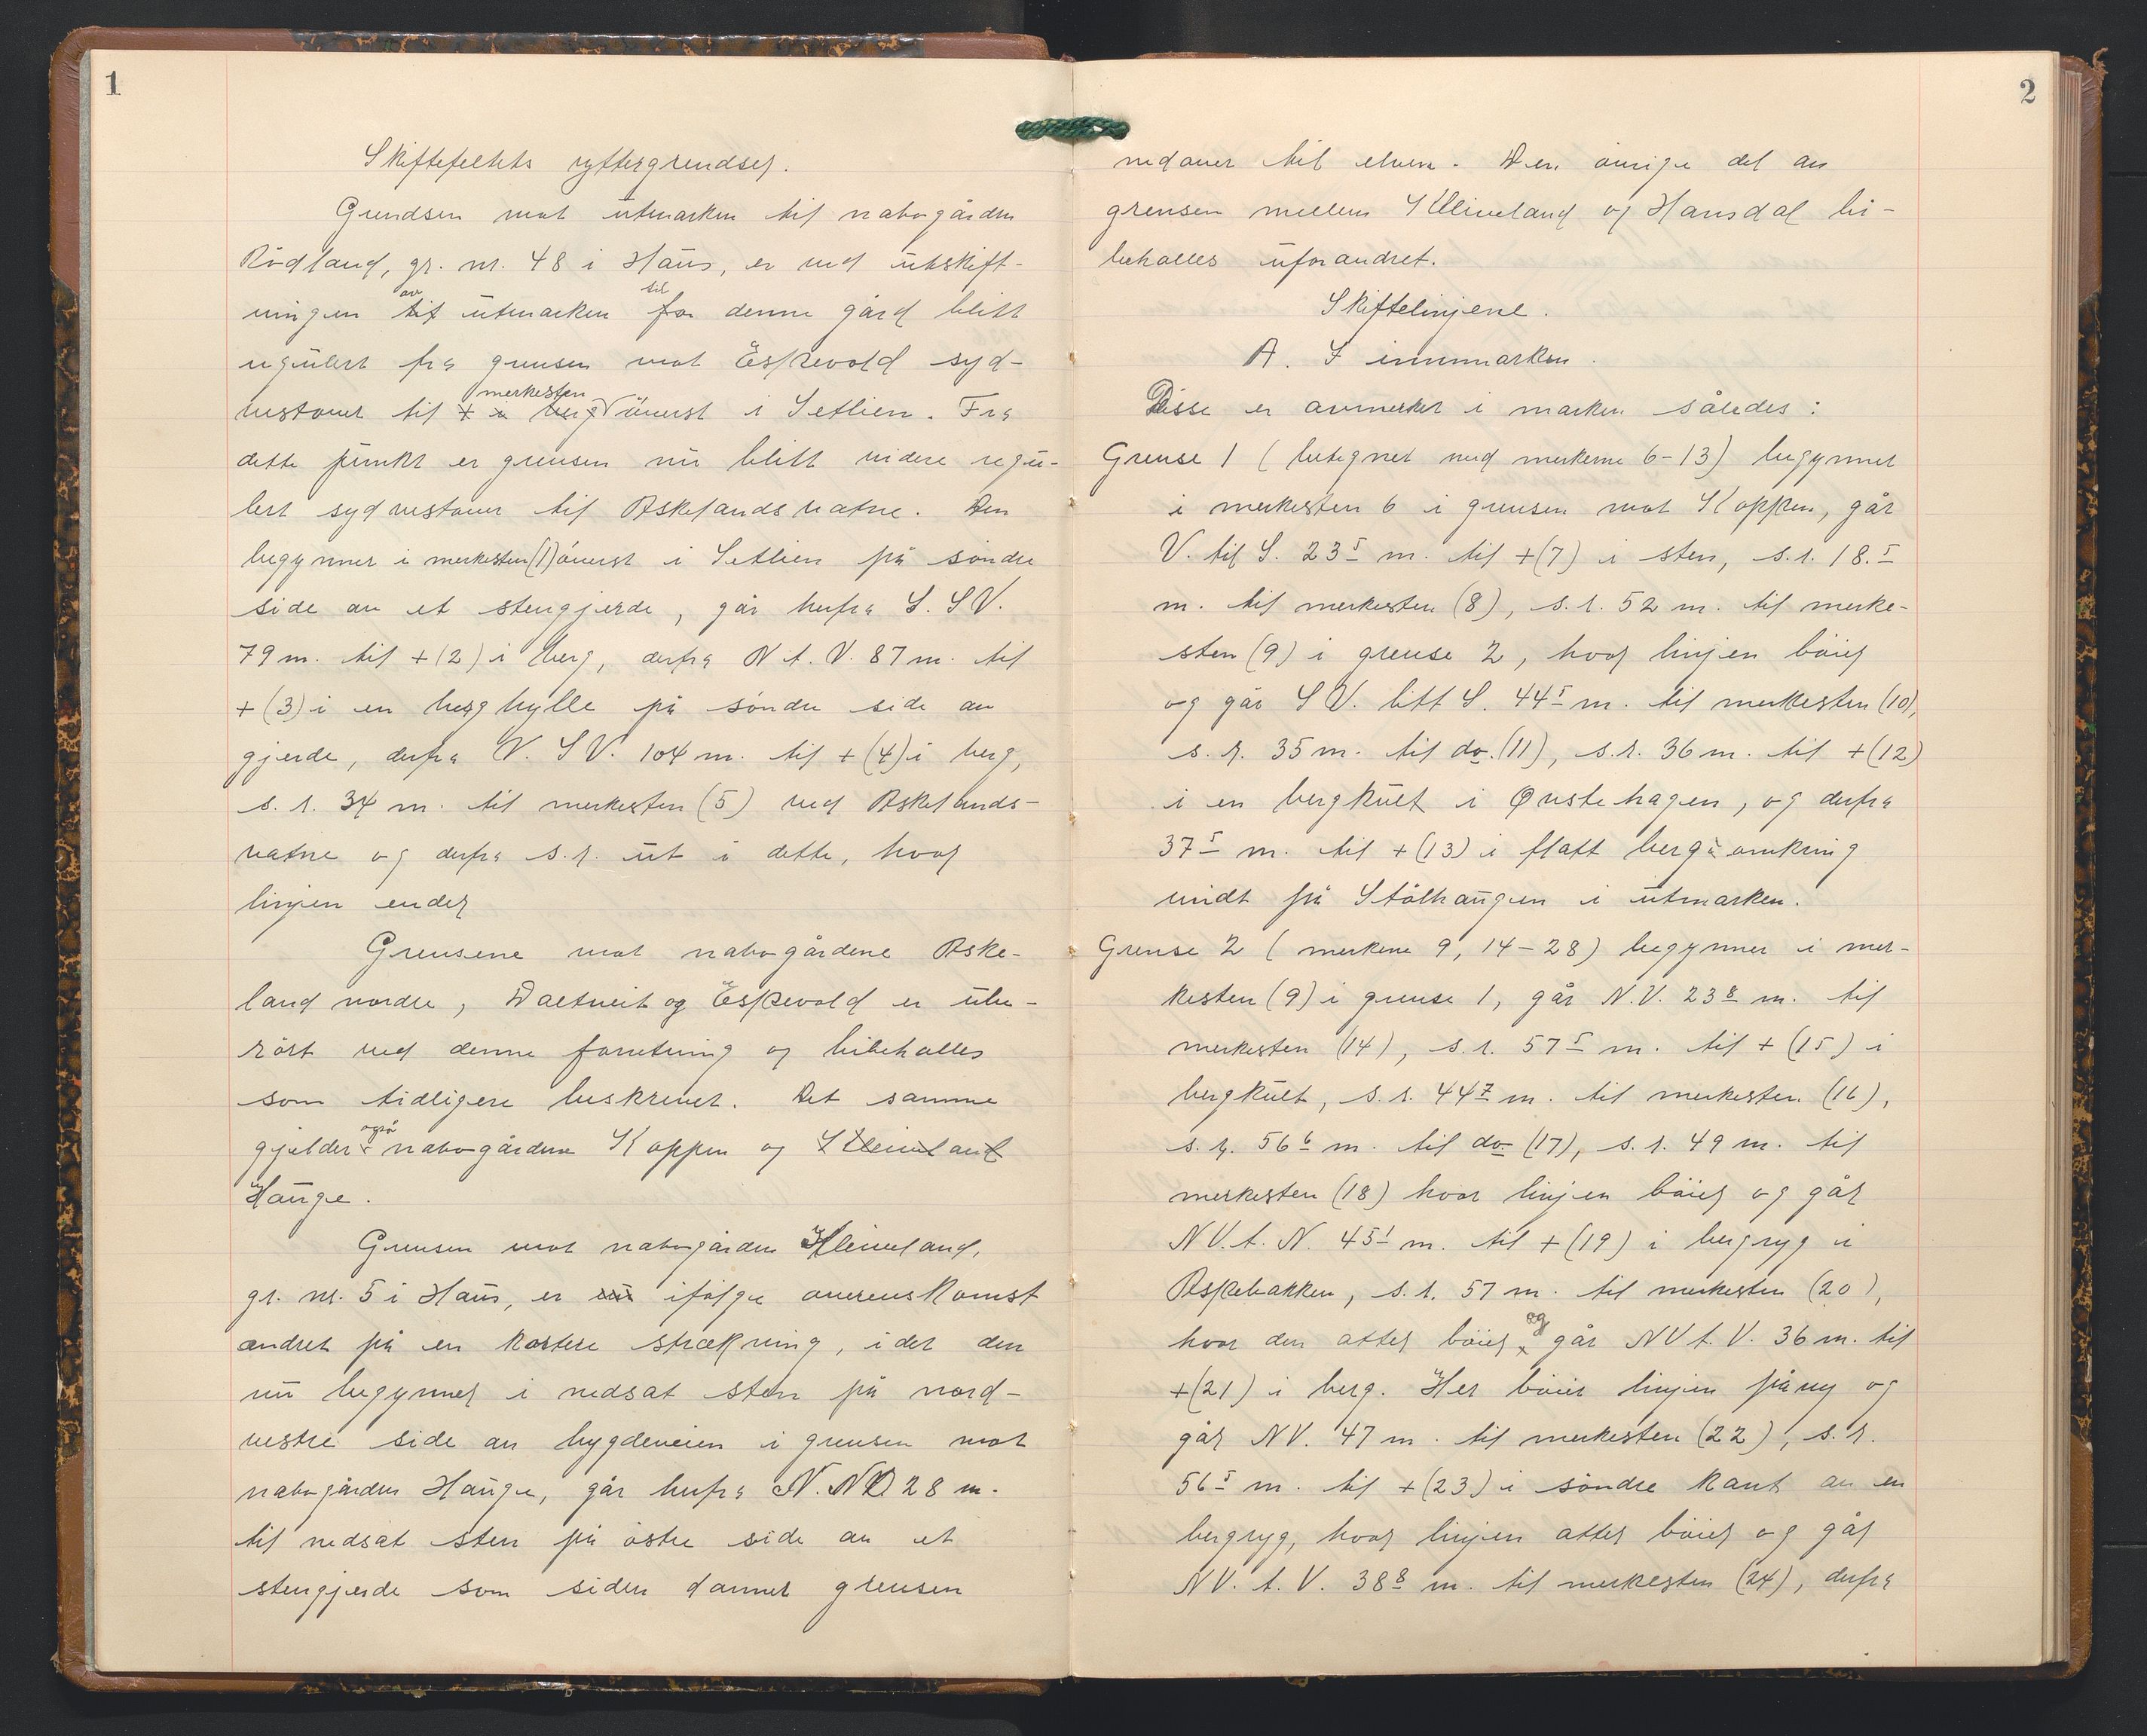 1
Skiftefeltets yttergrendser.
Grendsen mot utmarken til nabogården
Rödland, gr. nr. 48 i Haus, er ved utskift-
av til
ningen til utmarken for denne gård blitt
regulert fra grensen mot Espevold syd-
merkesten
vestover til + i berg överst i Setlien. Fra
dette punkt er grensen nu blitt videre regu-
lert sydvestover til Askelandsvatne. Den
begynner i merkesten (1) överst i Setlien på söndre
side av et stengjerde, går herfra S.SV.
79 m. til + (2) i berg, derfra N t. V. 87 m. til
+ (3) i en berghylle på söndre side av
gjerde, derfra V. SV. 104 m. til + (4) i berg,
s. r. 34 m. til merkesten (5) ved Askelands-
vatne og derfra s. r. ut i dette, hvor
linjen ender
Grensene mot nabogårdene Aske-
land nordre, Daltveit og Espevold er ube-
rört ved denne forretning og bibeholles
som tidligere beskrevet. Det samme
også
gjelder nabogårdene Koppen og Kleiveland
Hauge.
Grensen mot nabogården Kleiveland,
gr. nr. 5 i Haus, er nu ifölge overenskomst
endret på en kortere strækning, idet den
nu begynner i nedsat sten på nord-
vestre side av bygdeveien i grensen mot
nabogården Hauge, går herfra N. NO 28 m.
til nedsat sten på östre side av et
stengjerde som siden danner grensen
2
nedover til elven. Den övrige del av
grensen mellem Kleiveland og Hansdal bi-
beholles uforandret.
Skiftelinjene.
A. I innmarken.
Disse er avmerket i marken således:
Grense 1 (betegnet med merkene 6-13) begynner
i merkesten 6 i grensen mot Koppen, går
V. til S. 23 5 m. til + (7) i sten, s. r. 18. 5
m. til merkesten (8), s. r. 52 m. til merke-
sten (9) i grense 2, hvor linjen böier
og går SV. litt S. 44 5 m. til merkesten (10),
s. r. 35 m. til do. (11), s. r. 36 m. til + (12)
i en bergkult i Øvstehagen, og derfra
37 5 m. til + (13) i flatt berg omkring
midt på Stölhaugen i utmarken.
Grense 2 (merkene 9, 14-28) begynner i mer-
kesten (9) i grense 1, går N.V. 23 8 m. til
merkesten (14), s. r. 57 5 m. til + (15) i
bergkult, s. r. 44 7 m. til merkesten (16),
s. r. 56 6 m. til do (17), s. r. 49 m. til
merkesten (18) hvor linjen böier og går
NV. t. N. 45 1 m. til + (19) i bergryg i
Aspebakken, s. r. 57 m. til merkesten (20),
og
hvor den atter böier går NV t. V. 36 m. til
+ (21) i berg. Her böier linjen påny og
går NV. 47 m. til merkesten (22), s. r.
56 5 m. til + (23) i söndre kant av en
bergryg, hvor linjen atter böier og går
NV. t. V. 38 8 m. til merkesten (24), derfra